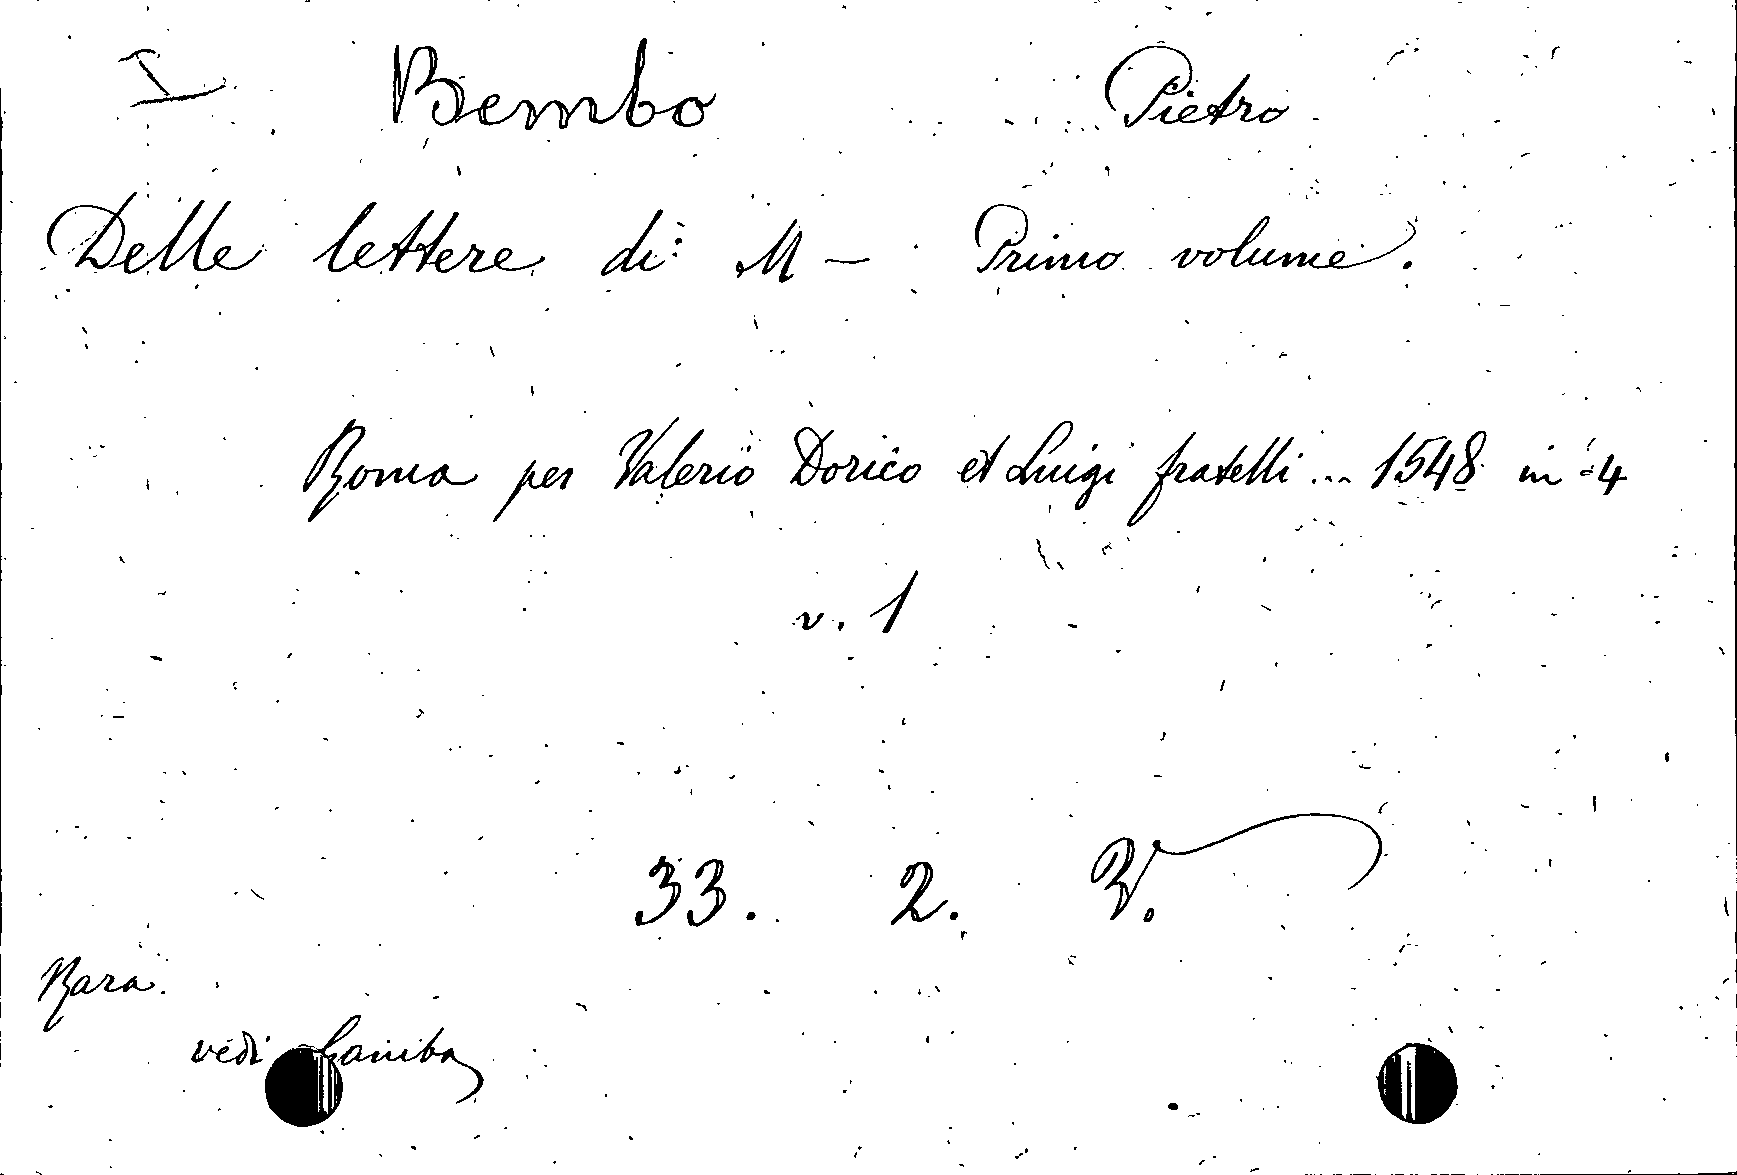 I Bembo Pietro
Delle lettere di M - Primo volume.
Roma per Valerio Dorico et Luigi fratelli ... 1548 in-4
v. 1
33. 2. V.
Rara
vedi Gamba